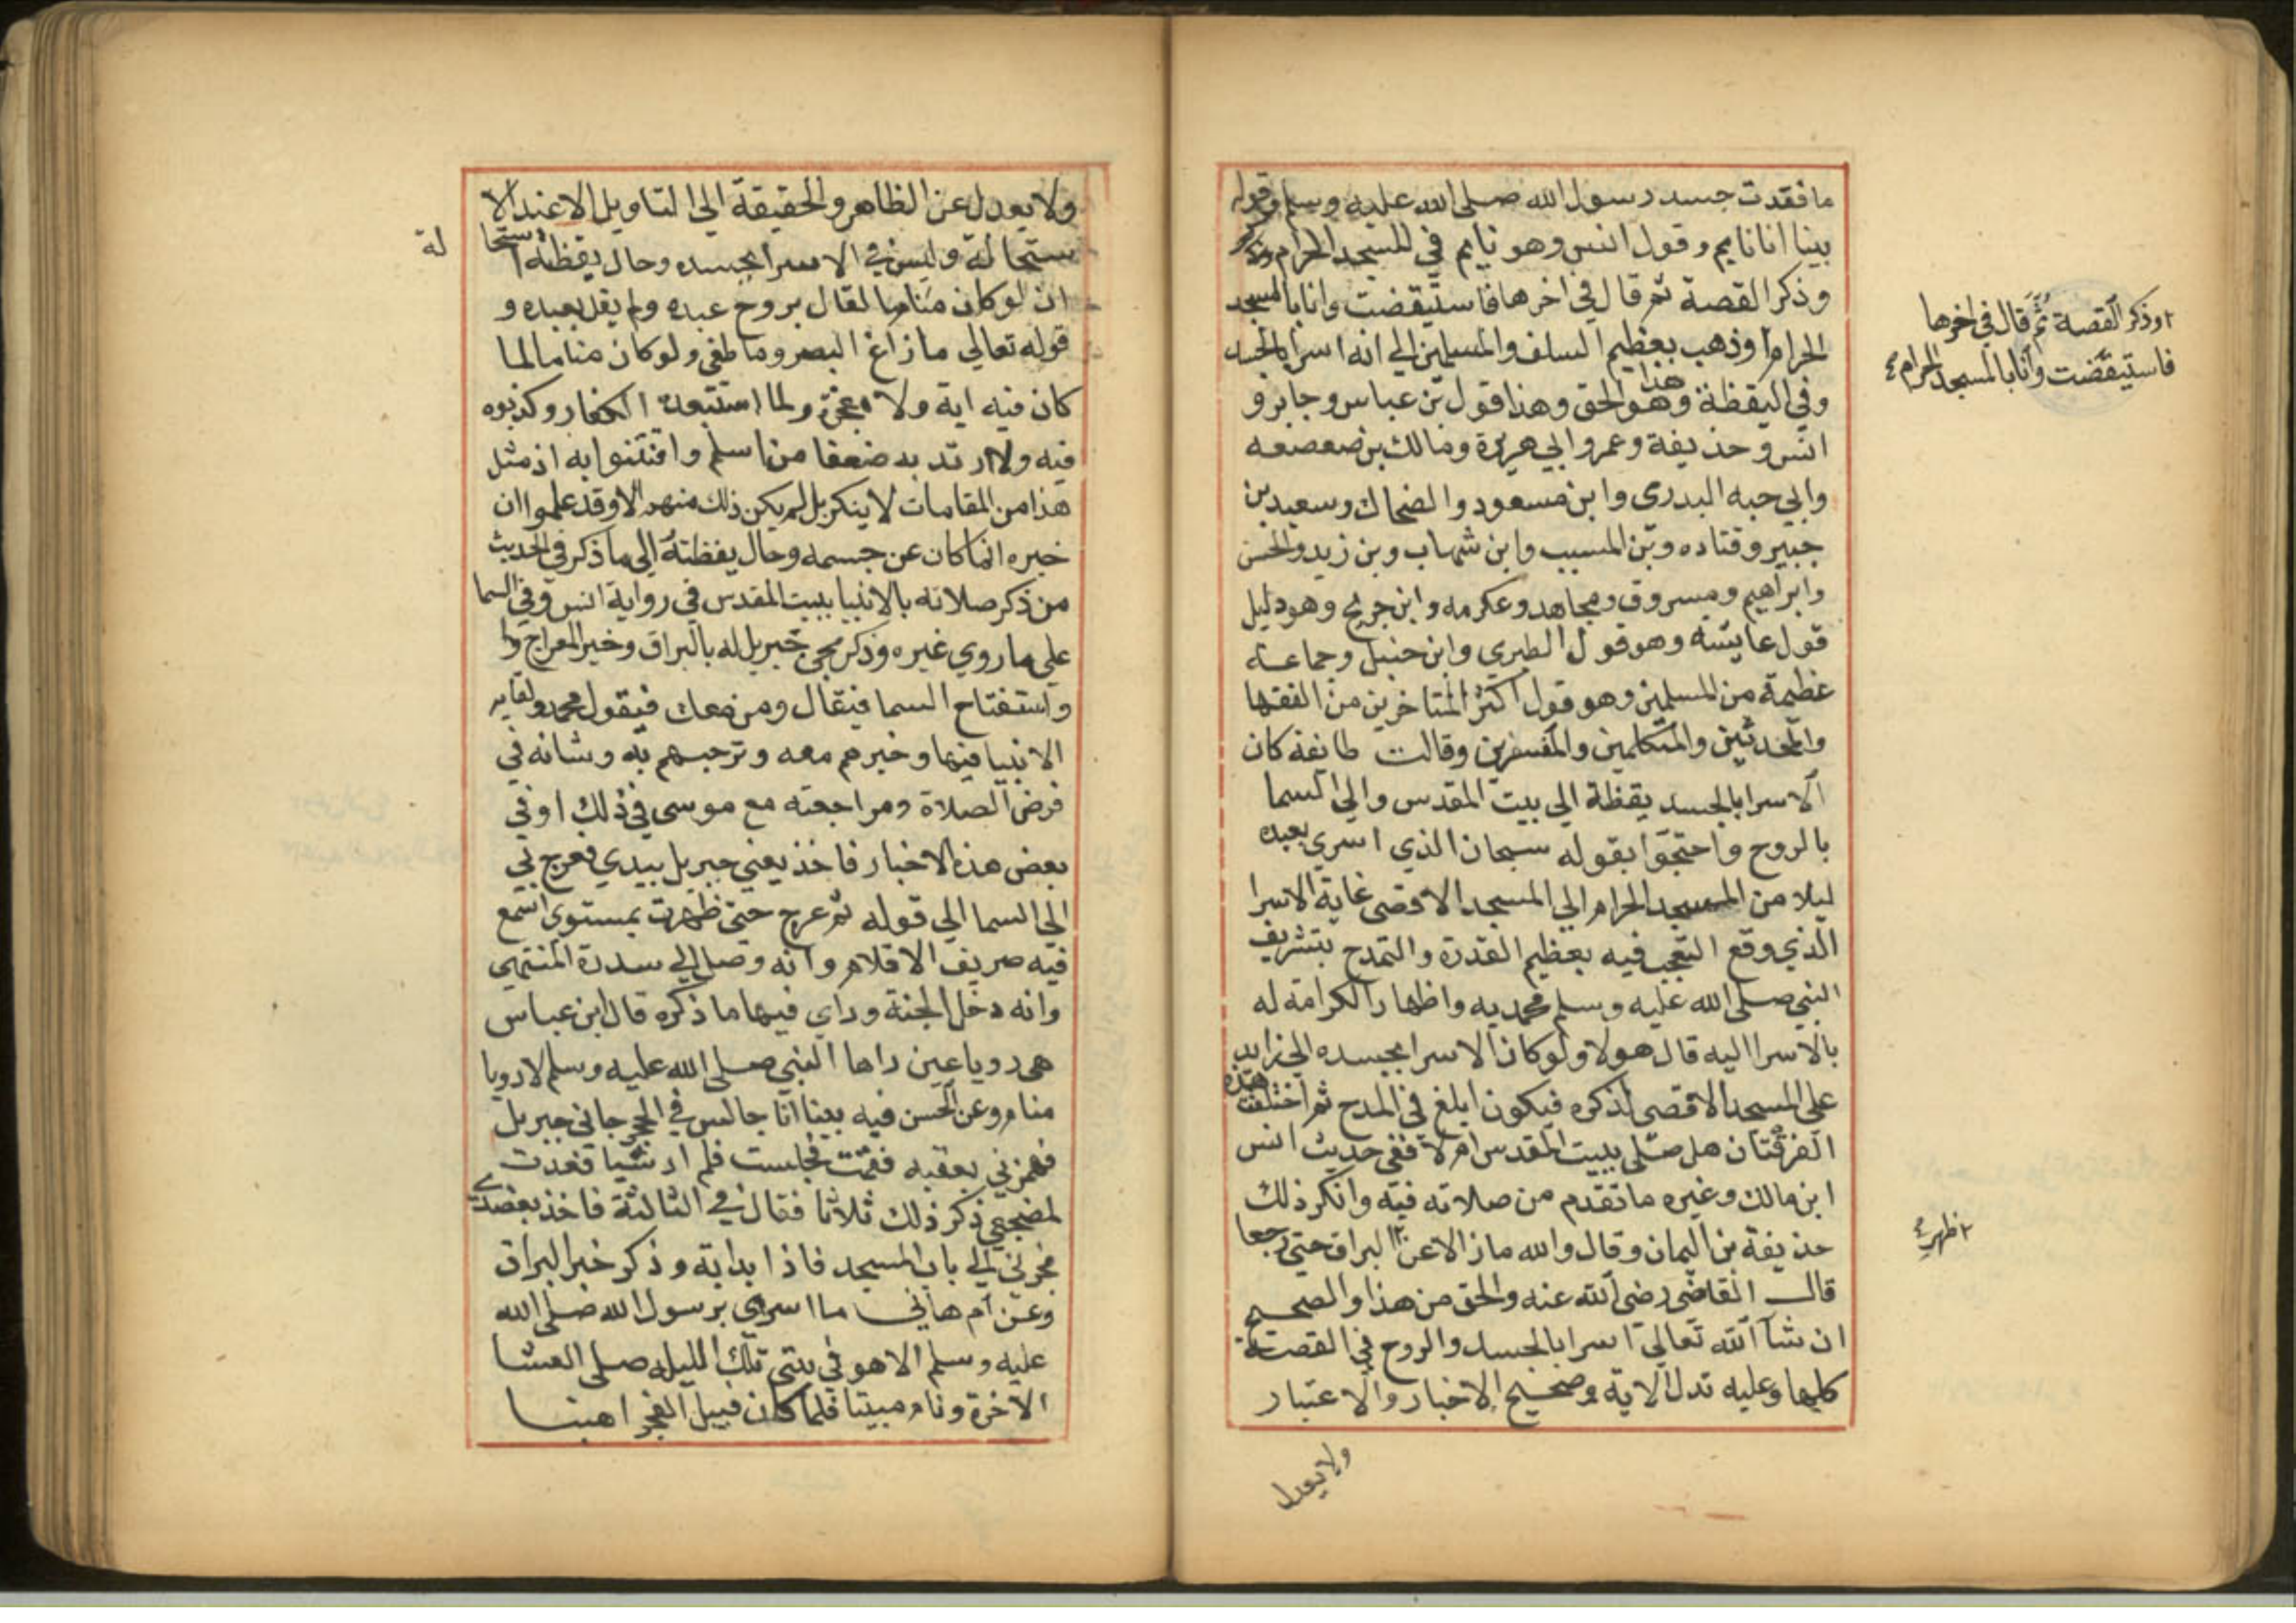 ما فقدت جسد رسول الله صلى الله عليه وسلم وقوله
بينا انا نايم وقول انس وهو نايم في المسجد الحرام وذكر
وذكر القصة ثم قال في اخرها فاستيقضت وانا بالمسجد
الحرام وذهب بعظيم السلف والمسلمين الي انه اسرا بالجسد
وفي اليقظة وهذا هو الحق وهذا قول بن عباس وجابر و
انس وحذيفة وعمر وابي هريرة ومالك بن صعصعه
وابي حبه البدري وابن مسعود والضحاك وسعيد بن
جبير وقتاده وبن المسيب وابن شهاب وبن زيد والحسن
وابراهيم ومسروق ومجاهد وعكرمه وابن جريج وهو دليل
قول عايشه وهو قول الطبري وابن حنبل وجماعة
عظيمة من المسلمين وهو قول اكثر المتاخرين من الفقها
والمحدثين والمتكلمين والمفسرين وقالت طايفه كان
الاسرا بالجسد يقظة الي بيت المقدس والي السما
بالروح واحتجوا بقوله سبحان الذي اسري بعبده
ليلا من المسجد الحرام الي المسجد الاقصى غاية الاسرا
الذي وقع التعجب فيه بعظيم القدرة والتمدح بتشريف
النبي صلى الله عليه وسلم محمد به واظهار الكرامة له
بالاسرا اليه قال هولا ولو كان الاسرا بجسده الي زايد
على المسجد الاقصى لذكره فيكون ابلغ في المدح ثم اختلفت هذه
الفرقتان هل صلى ببيت المقدس ام لا ففي حديث انس
ابن مالك وغيره ما تقدم من صلاته فيه وانكر ذلك
حذيفة بن اليمان وقال والله ما زالا عن البراق حتى رجعا
قال القاضي رضي الله عنه والحق من هذا والصحيح
ان شآ الله تعالي اسرا بالجسد والروح في القصة
كلها وعليه تدل الاية وصحيح الاخبار والاعتبار
ولا يعدل
وذكر القصة ثم قال في اخرها
فاستيقضت وانا بالمسجد الحرام
ظهر
ولا يعدل عن الظاهر والحقيقة الي التاويل الا عند الا
ستحالة وليس في الاسرا بجسده وحال يقظته استحا
لة
ان لو كان مناما لقال بروح عبده ولم يقل بعبده و
قوله تعالي ما زاغ البصر وما طغى ولو كان مناما لما
كان فيه اية ولا معجزة ولما استبعده الكفار وكذبوه
فيه ولا ارتد به ضعفا من اسلم وافتتنوا به اذ مثل
هذا من المقامات لا ينكر بل لم يكن ذلك منهم الا وقد علموا ان
خبره انما كان عن جسمه وحال يقظته الي ما ذكر في الحديث
من ذكر صلاته بالانبيا ببيت المقدس في رواية انس وفي السما
على ما روي غيره وذكر مجي جبريل له بالبراق وخبر المعراج وا
واستفتاح السما فيقال ومن معك فيقول محمد ولقايه
الانبيا فيها وخبرهم معه وترحيبهم به وشانه في
فرض الصلاة ومراجعته مع موسى في ذلك او في
بعض هذه الاخبار فاخذ يعني جبريل بيدي فعرج بي
الي السما الي قوله ثم عرج حتى ظهرت بمستوي اسمع
فيه صريف الاقلام وانه وصل الي سدرة المنتهى
وانه دخل الجنة وراي فيها ما ذكره قال ابن عباس
هي رويا عين راها النبي صلى الله عليه وسلم لا رويا
منام وعن الحسن فيه بينا انا جالس في الحجر جاني جبريل
فهمزني بعقبه فقمت فجلست فلم ار شيا فعدت
لمضجعي ذكر ذلك ثلاثا فقال في الثالثة فاخذ بعضدي
فجرني الي باب المسجد فاذا بدابة وذكر خبر البراق
وعن ام هاني ما اسري برسول الله صلى الله
عليه وسلم الا هو في بيتي تلك الليله صلى العشا
الاخرة ونام مبيتا فلما كان قبيل الفجر اهبنا